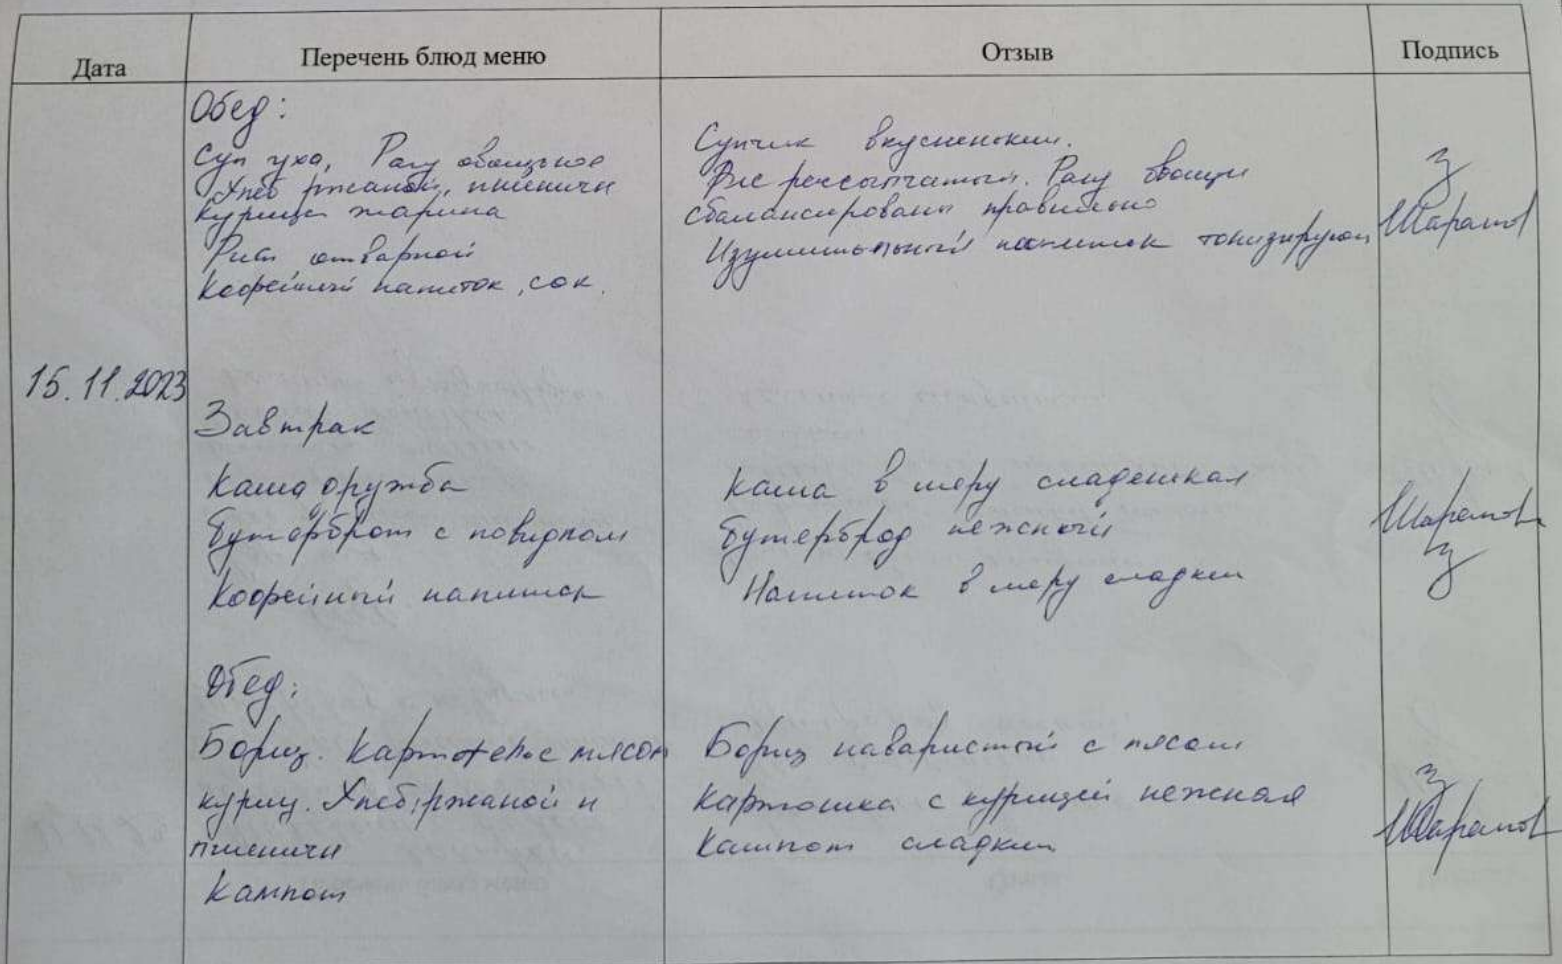 Дата
Перечень блюд меню
Отзыв
Подпись
Обед:
Суп уха, Рагу овощьное
Хлеб ржаной, пшеничн
курица жарина
Рис отварной
Кофейный напиток, сок.
Супчик вкусненький.
Рис рассыпчатый. Рагу овощи
сбалансированы правильно
Изумительный напиток тонизирует
З
Шарапов
15.11.2023
Завтрак
Каша дружба
Бутерброт с повидлом
Кофейный напиток
Каша в меру сладенькая
Бутерброд нежный
Напиток в меру сладкий
Шарапов
З
Обед:
Борщ. Картофель с мясом
куриц. Хлеб, ржаной и
пшеничн
Кампот
Борщ наваристый с мясом
Картошка с курицей нежная
Кампот сладкий
З
Шарапов